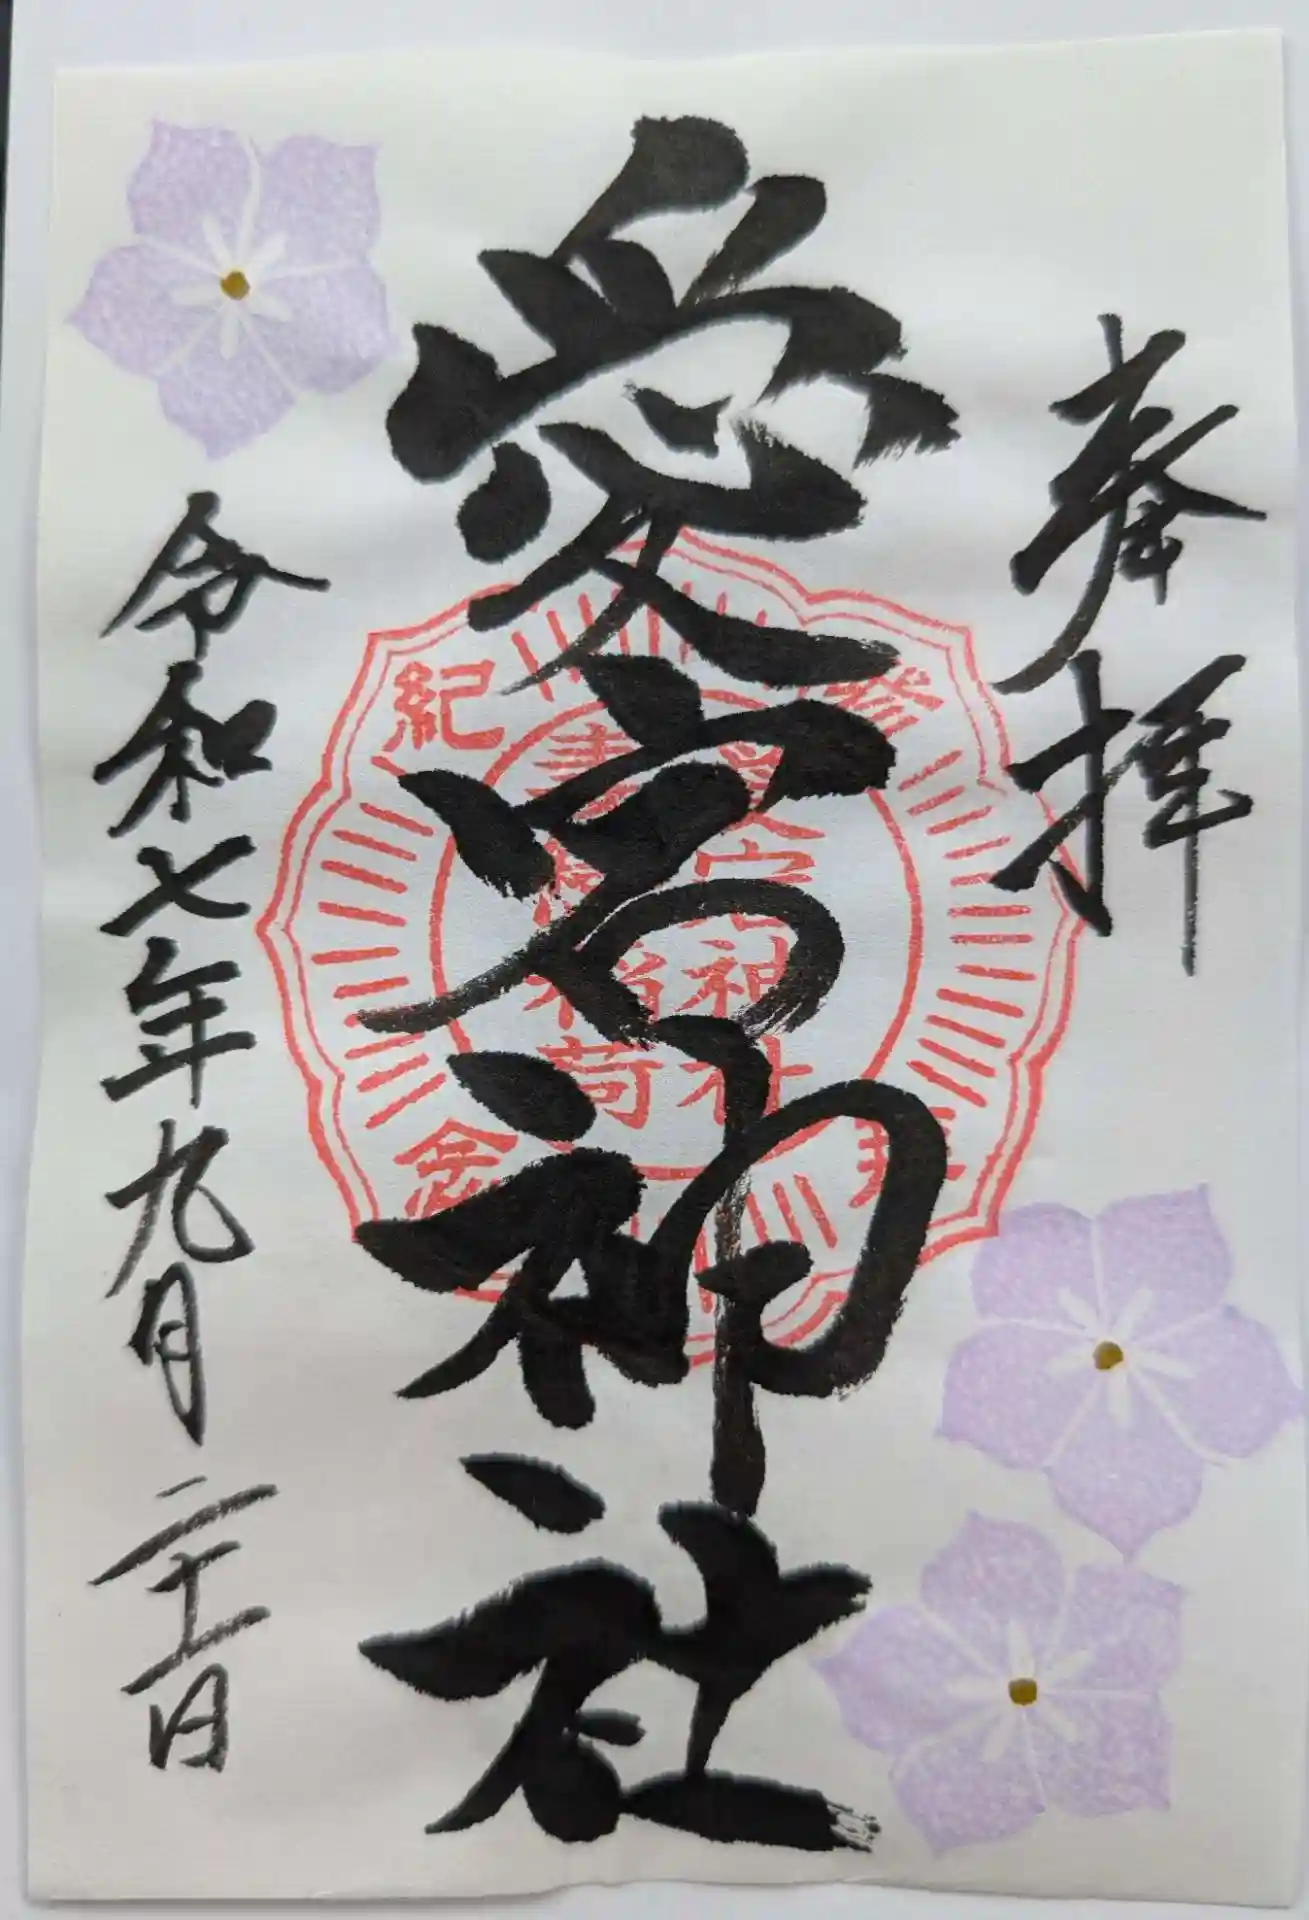 奉拝
愛宕神社
令和七年九月二十二日
愛宕神社
稲荷
紀念